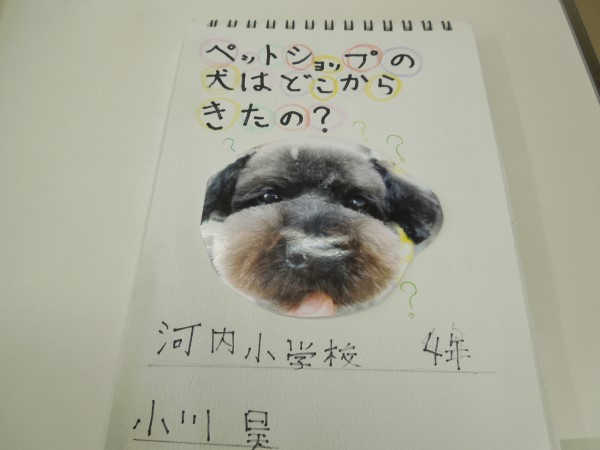 ペットショップの
犬はどこから
きたの？
? ? ?
?
河内小学校 4年
小川 昊